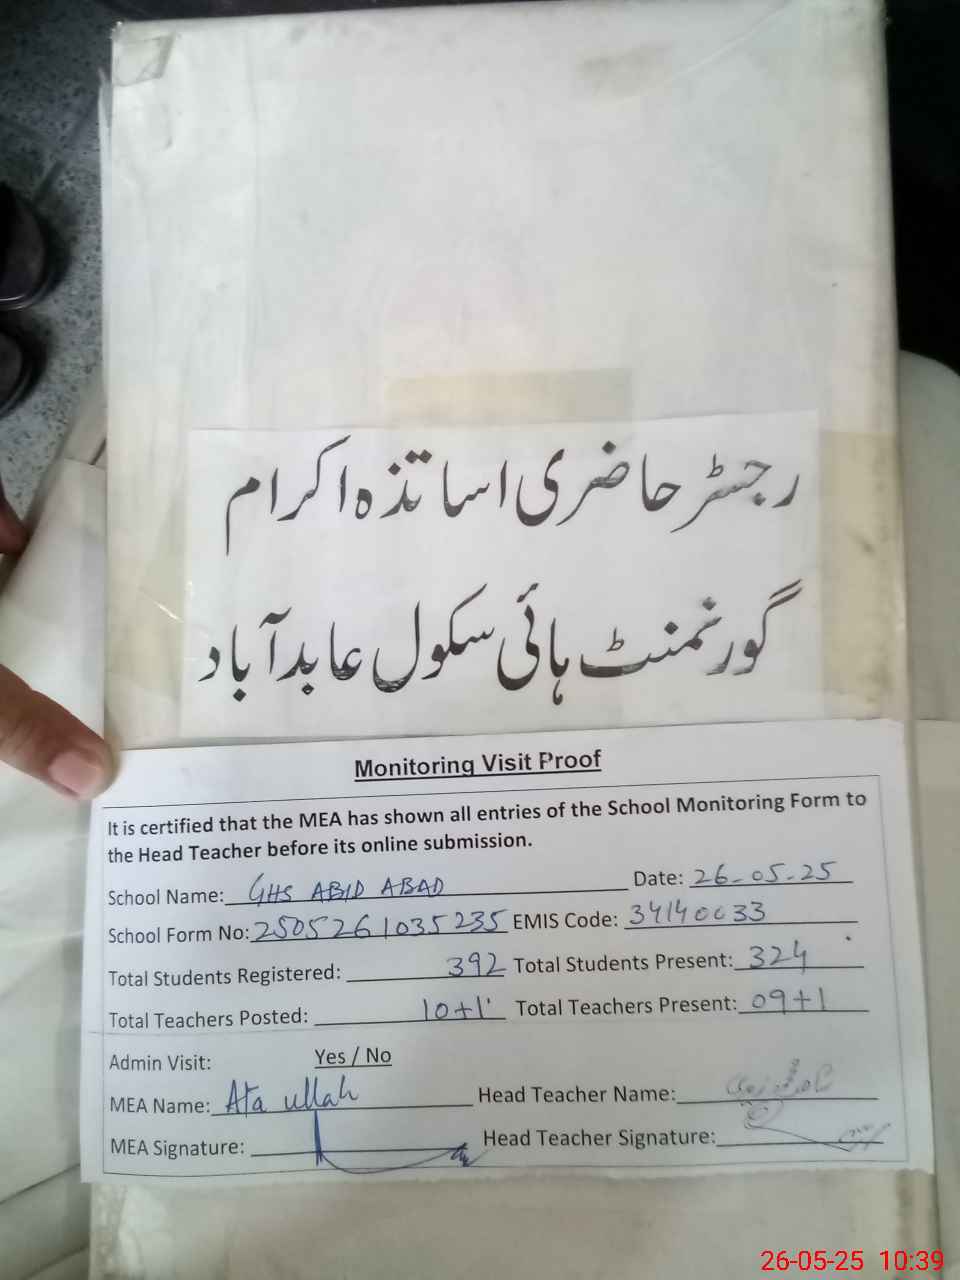 رجسٹر حاضری اساتذہ اکرام
گورنمنٹ ہائی سکول عابد آباد
Monitoring Visit Proof
It is certified that the MEA has shown all entries of the School Monitoring Form to
the Head Teacher before its online submission.
School Name: GHS ABID ABAD Date: 26-05-25
School Form No: 2505261035235 EMIS Code: 34140033
Total Students Registered: 392 Total Students Present: 324
Total Teachers Posted: 10+1 Total Teachers Present: 09+1
Admin Visit: Yes / No
MEA Name: Ata ullah Head Teacher Name:
MEA Signature: Head Teacher Signature:
26-05-25 10:39